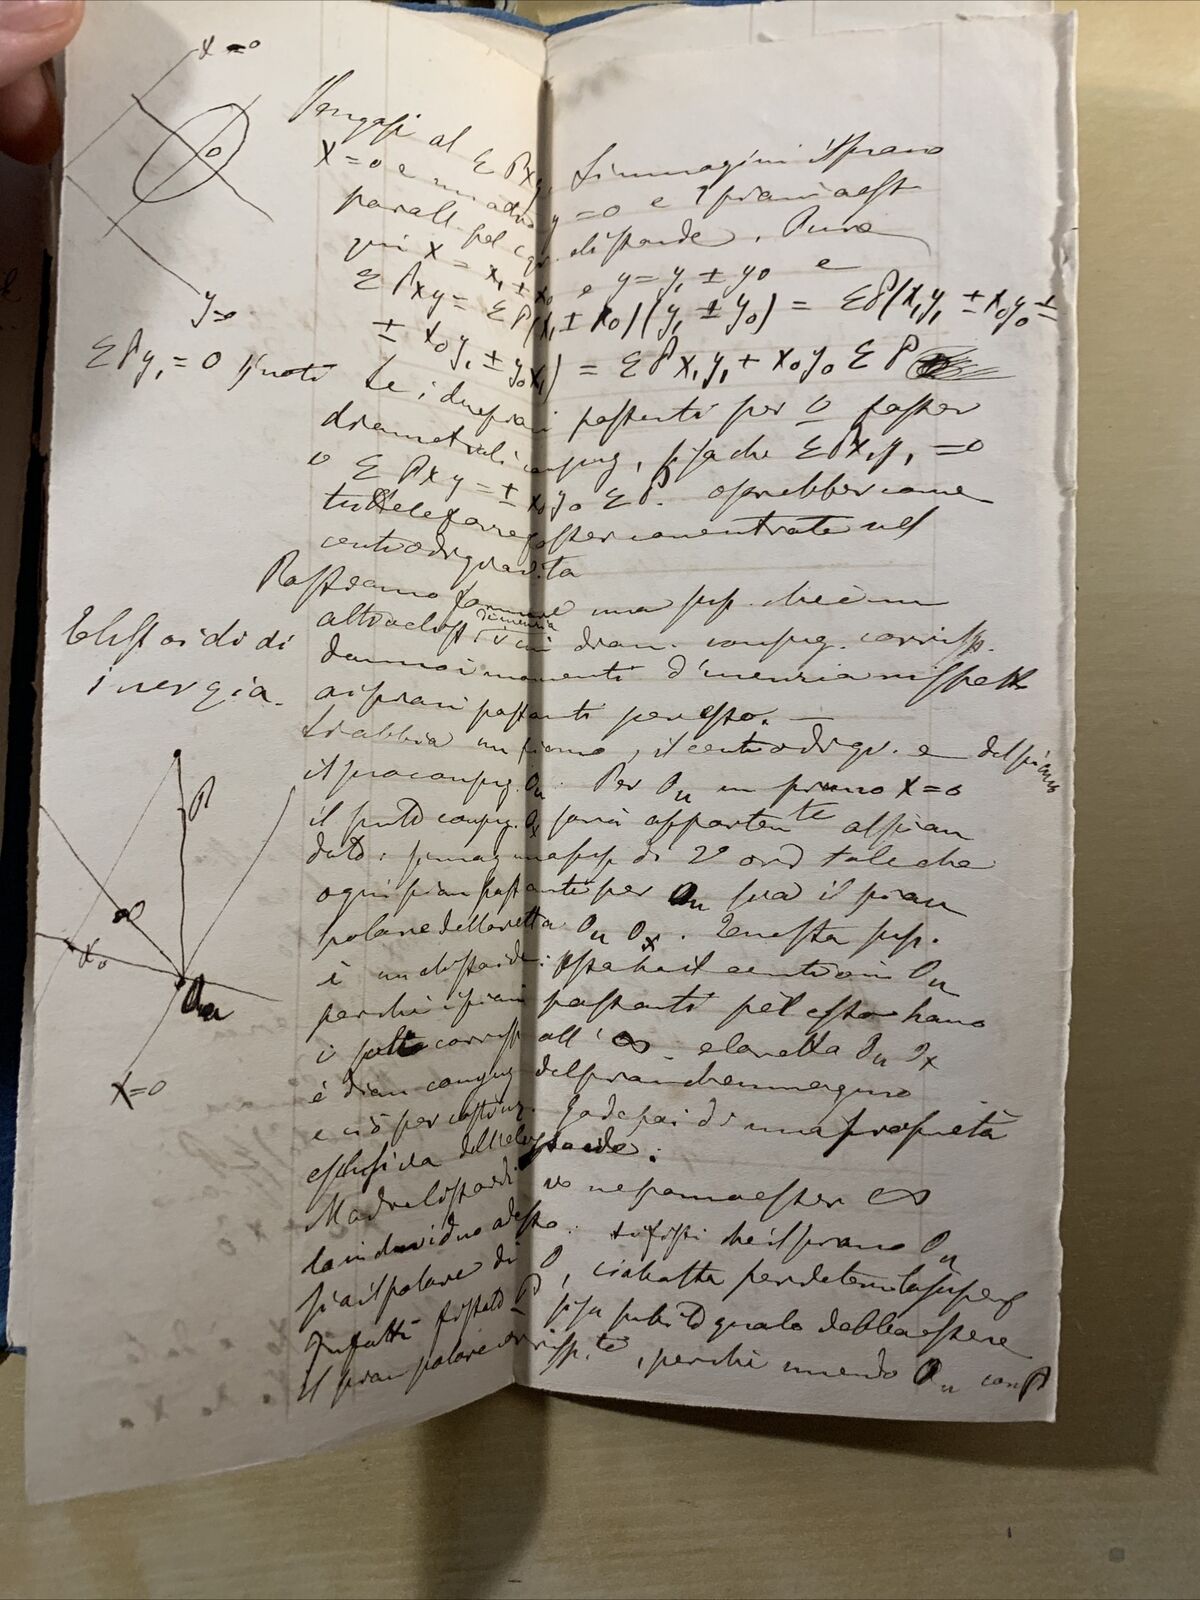 x=0
O
y=0
Σ P y, = 0 si noti
Ellissoidi di
inerzia.
P
∞
x₀
Oₙ
x=0
Vengasi al Σ Pxy. Si immagini il piano
x=0 e y=0 e 2 piani a essi
parall. pel c. gr. distande. Pure
qui x = x₁ ± x₀ e y = y₁ ± y₀ e
Σ Pxy = Σ P(x₁ ± x₀)(y₁ ± y₀) = Σ P(x₁y₁ ± x₀y₀ ±
± x₀y₁ ± y₀x₁) = Σ P x₁y₁ + x₀y₀ Σ P
Se i due piani passanti per O fosser
diametrali conjug, si ha che Σ Px₁y₁ = 0
e Σ Pxy = ± x₀y₀ Σ P. o sarebber come
tutte le forze fosser concentrate nel
centro di gravità
Possiamo formare una sup. che è un
altro eliss i cui diam. conjug. corrisp.
danno i momenti d'inerzia rispett
ai piani passanti per esso.
Si abbia un piano, il centro di gr. e del piano
il suo conjug. Oₙ. Per Oₙ un piano x=0
il punto conjug. Oₓ sarà apparten^te al pian
dato: immag una sup di 2º ord tale che
ogni pian passante per Oₙ sia il pian
polare della retta Oₙ Oₓ. Questa sup.
è un elissoide: essa ha il centro in Oₙ
perchè i piani passanti pel esso hano
i corrisp all' ∞. e la retta Oₙ Oₓ
è diam conjug del piano che immagino
e ciò per costruz. Gode poi di una proprietà
esclusiva dell'elissoide.
Ma di elissoidi ve ne ponno esser ∞
la individuo adesso: si fissi che il piano Oₙ
sia il polare di O, ciò basta per determ la superf
Infatti fissato P si sa subito quale debba essere
il pian polare corrisp.te, perchè unendo Oₙ con P